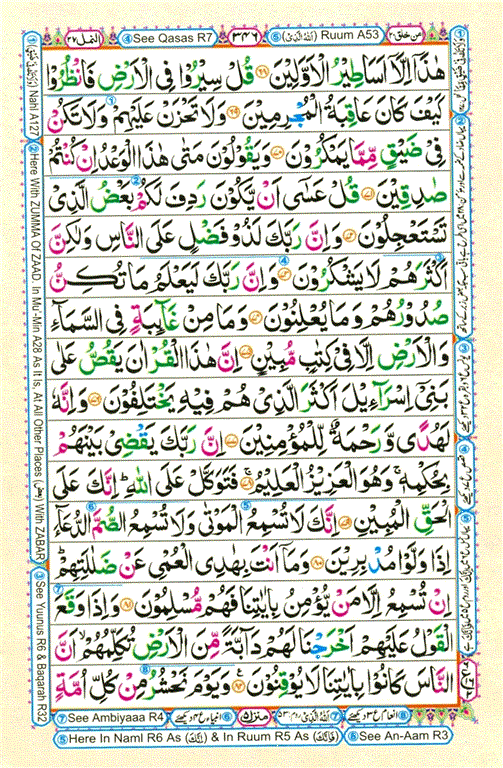 النمل ٢٧
④ See Qasas R7
٣٤٦
⑤ (اَللّٰهُ الَّذِىْ) Ruum A53
امن خلق ٢٠
هٰذَاۤ اِلَّاۤ اَسَاطِيْرُ الْاَوَّلِيْنَ ۝٦٨ قُلْ سِيْرُوْا فِى الْاَرْضِ فَانْظُرُوْا
كَيْفَ كَانَ عَاقِبَةُ الْمُجْرِمِيْنَ ۝٦٩ وَلَا تَحْزَنْ عَلَيْهِمْ وَلَا تَكُنْ
فِىْ ضَيْقٍ مِّمَّا يَمْكُرُوْنَ ۝٧٠ وَيَقُوْلُوْنَ مَتٰى هٰذَا الْوَعْدُ اِنْ كُنْتُمْ
صٰدِقِيْنَ ۝٧١ قُلْ عَسٰۤى اَنْ يَّكُوْنَ رَدِفَ لَكُمْ بَعْضُ الَّذِىْ
تَسْتَعْجِلُوْنَ ۝٧٢ وَاِنَّ رَبَّكَ لَذُوْ فَضْلٍ عَلَى النَّاسِ وَلٰكِنَّ
اَكْثَرَهُمْ لَا يَشْكُرُوْنَ ۝٧٣ وَاِنَّ رَبَّكَ لَيَعْلَمُ مَا تُكِنُّ
صُدُوْرُهُمْ وَمَا يُعْلِنُوْنَ ۝٧٤ وَمَا مِنْ غَآئِبَةٍ فِى السَّمَآءِ
وَالْاَرْضِ اِلَّا فِىْ كِتٰبٍ مُّبِيْنٍ ۝٧٥ اِنَّ هٰذَا الْقُرْاٰنَ يَقُصُّ عَلٰى
بَنِىْۤ اِسْرَآءِيْلَ اَكْثَرَ الَّذِىْ هُمْ فِيْهِ يَخْتَلِفُوْنَ ۝٧٦ وَاِنَّهٗ
لَهُدًى وَّرَحْمَةٌ لِّلْمُؤْمِنِيْنَ ۝٧٧ اِنَّ رَبَّكَ يَقْضِىْ بَيْنَهُمْ
بِحُكْمِهٖ ۚ وَهُوَ الْعَزِيْزُ الْعَلِيْمُ ۝٧٨ فَتَوَكَّلْ عَلَى اللّٰهِ ؕ اِنَّكَ عَلَى
الْحَقِّ الْمُبِيْنِ ۝٧٩ اِنَّكَ لَا تُسْمِعُ الْمَوْتٰى وَلَا تُسْمِعُ الصُّمَّ الدُّعَآءَ
اِذَا وَلَّوْا مُدْبِرِيْنَ ۝٨٠ وَمَاۤ اَنْتَ بِهٰدِى الْعُمْىِ عَنْ ضَلٰلَتِهِمْ ؕ
اِنْ تُسْمِعُ اِلَّا مَنْ يُّؤْمِنُ بِاٰيٰتِنَا فَهُمْ مُّسْلِمُوْنَ ۝٨١ وَاِذَا وَقَعَ
الْقَوْلُ عَلَيْهِمْ اَخْرَجْنَا لَهُمْ دَآبَّةً مِّنَ الْاَرْضِ تُكَلِّمُهُمْ ۙ اَنَّ
النَّاسَ كَانُوْا بِاٰيٰتِنَا لَا يُوْقِنُوْنَ ۝٨٢ وَيَوْمَ نَحْشُرُ مِنْ كُلِّ اُمَّةٍ
Nahl A127
② Here With ZUMMA Of ZAAD, In Mu'-Min A28 As It Is, At All Other Places (بَعْضَ) With ZABAR
③ See Yuunus R6 & Baqarah R32
⑦ See Ambiyaaa R4
منزل ٥
⑤ Here In Naml R6 As (اِنَّكَ) & In Ruum R5 As (فَاِنَّكَ)
⑧ See An-Aam R3